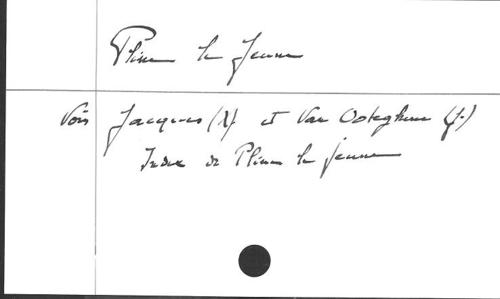 Pline le Jeune
Voir Jacques (X) et Van Ooteghem (J.)
Index de Pline le jeune